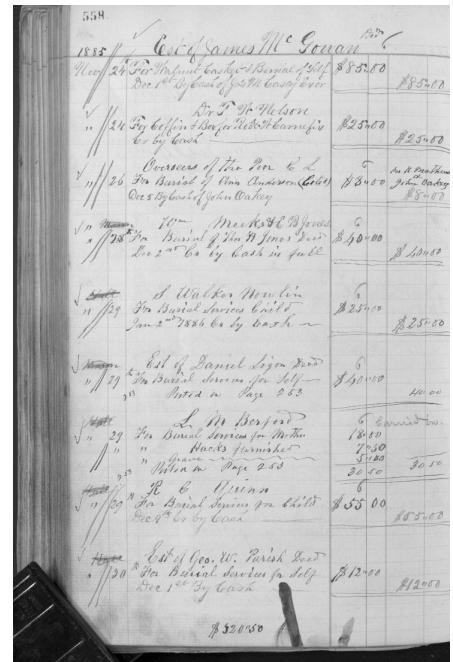 558
1885 Est of James McGowan
Nov 24 For Walnut Casket & Burial of Self $85.00
Dec 1st By Cash of Jos M Casey Exor $85.00
Dr T W Nelson
" 24 For Coffin & Box for $25.00
Cr by Cash $25.00
Overseers of the Poor 6
" 26 For Burial of Ann Anderson $8.00 John Oakey
Dec 5 By Cash of John Oakey $8.00
Wm Meeks & C B Jones 6
" 28th For Burial of Thos H Jones Decd $40.00
Dec 2nd Cr by Cash in full $40.00
S Walker Nowlin 6
" 29 For Burial Services Child $25.00
Jan 2nd 1886 Cr by Cash $25.00
Est of Daniel Decd 6
" 29 For Burial Services for Self $40.00
253 Posted on Page 253 40.00
L M 6 Carried
" 29 For Burial Services for Mother 18.00
" " Hacks furnished 7.50
" Grave 5.00
253 Posted on Page 253 30.50 30.50
R C Quinn 6
" 29 For Burial Services for Child $55.00
Dec 9th Cr by Cash $55.00
Est of Geo. W. Parish Decd
" 30 For Burial Services for Self $12.00
Dec 1st By Cash $12.00
$320.50